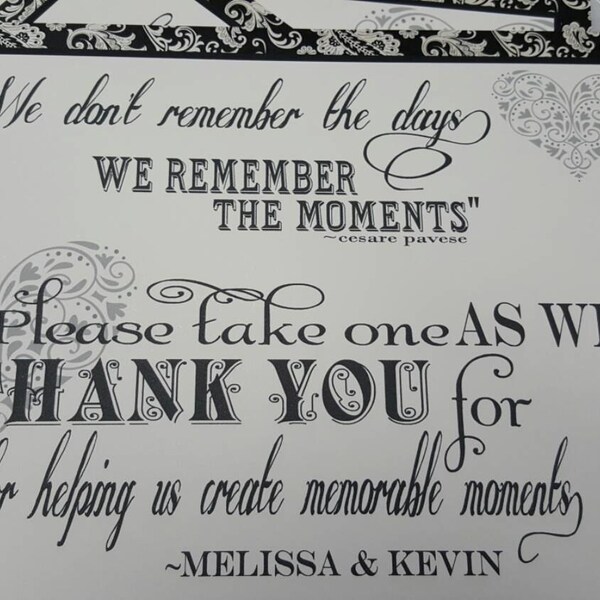 We don't remember the days
WE REMEMBER
THE MOMENTS"
~cesare pavese
Please take one AS WE
THANK YOU for
for helping us create memorable moments
~MELISSA & KEVIN